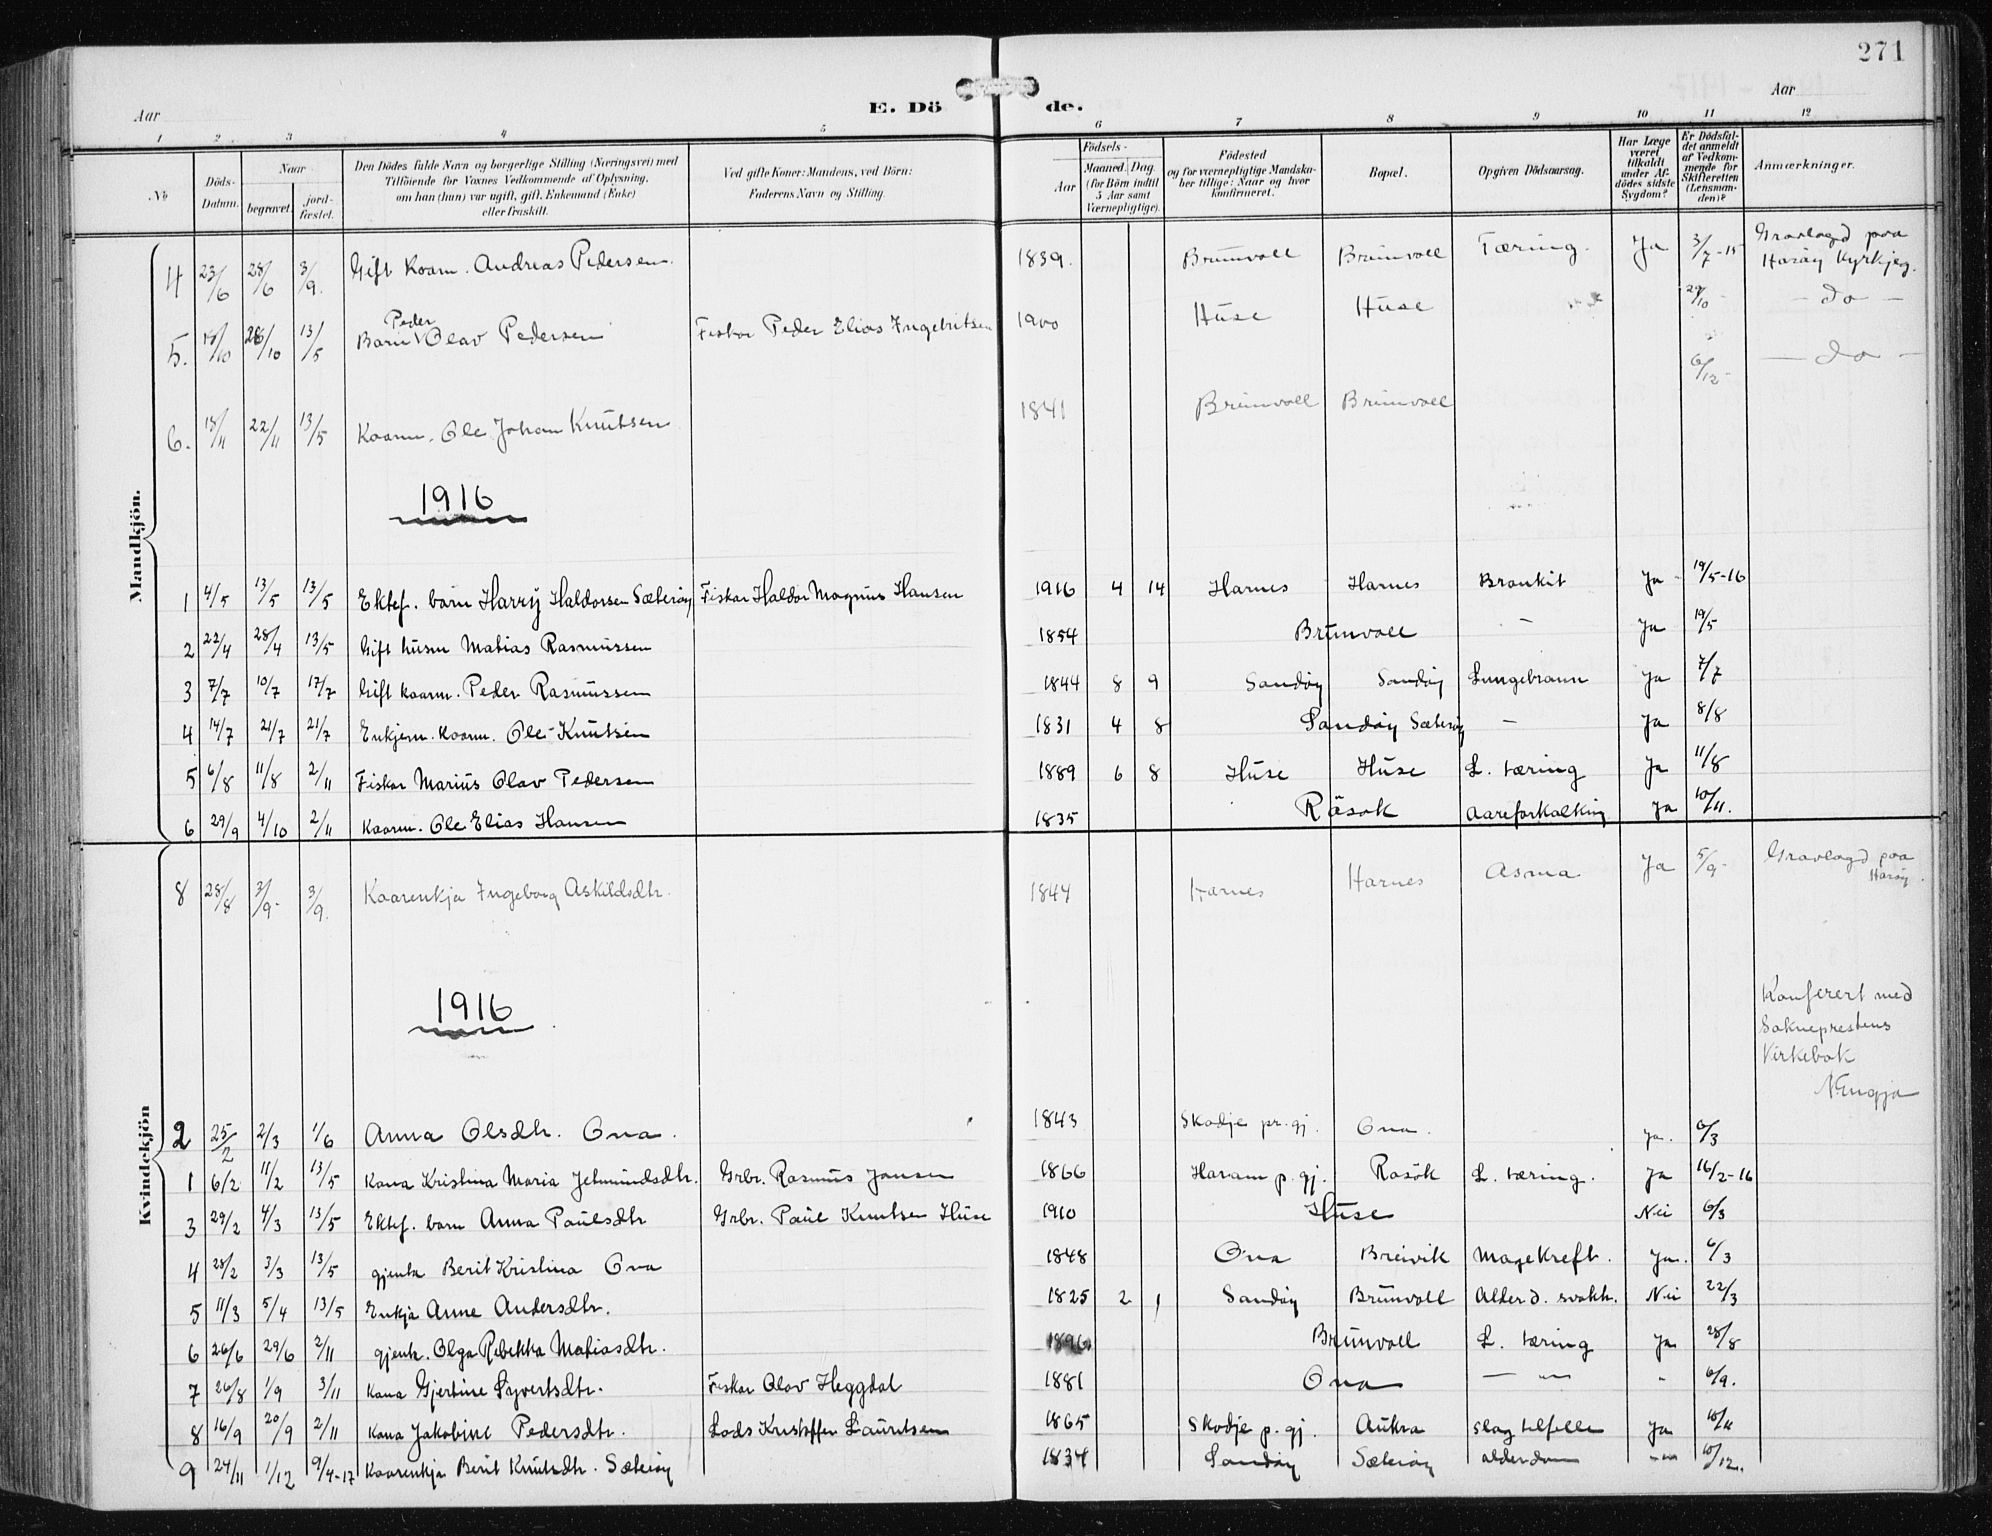 271
Aar
E. Dö de.
Aar
1 2 3 4 5 6 7 8 9 10 11 12
No
Döds-Datum.
Naar
begravet.
jord-fæstet.
Den Dödes fulde Navn og borgerlige Stilling (Næringsvei) med
Tilföiende for Voxnes Vedkommende af Oplysning,
om han (hun) var ugift, gift, Enkemand (Enke)
eller fraskilt.
Ved gifte Koner: Mandens, ved Börn:
Faderens Navn og Stilling.
Födsels-
Aar
Maaned. Dag.
(for Börn indtil
5 Aar samt
Værnepligtige).
Födested
og for værnepligtige Mandska-
ber tillige: Naar og hvor
konfirmeret.
Bopæl.
Opgiven Dödsaarsag.
Har Læge
været
tilkaldt
under Af-
dödes sidste
Sygdom?
Er Dödsfal-
det anmeldt
af Vedkom-
mende for
Skifteretten
(Lensman-
den)?
Anmærkninger.
Mandkjön.
4 23/6 28/6 3/9. Gift Kaarm. Andreas Pedersen. 1839. Brunvoll Brunvoll Tæring. Ja 3/7-15 Gravlagd paa
Harøy Kyrkjeg.
5. 18/10 28/10 13/5 Barn Peder Olav Pedersen Fiskar Peder Elias Ingebritsen 1900 Huse Huse 29/10 - do -
6. 18/11 22/11 13/5 Kaarm. Ole Johan Knutsen 1841 Brunvoll Brunvoll 6/12- - do -
1916
1 4/5 13/5 13/5 Ektef. barn Harry Haldorsen Sæterøy Fiskar Haldor Magnus Hansen 1916 4 14 Harnes Harnes Bronkit Ja 19/5-16
2 22/4 28/4 13/5 Gift husm Matias Rasmussen 1854 Brunvoll - Ja 19/5
3 7/7 10/7 17/7 Gift kaarm. Peder Rasmussen 1844 8 9 Sandøy Sandøy Lungebrann Ja 7/7
4 14/7 21/7 21/7 Enkjem. kaarm. Ole Knutsen 1831 4 8 Sandøy Sæterøy - Ja 8/8
5 6/8 11/8 2/11 Fiskar Marius Olav Pedersen 1889 6 8 Huse Huse L. tæring Ja 11/8
6 29/9 4/10 2/11 Kaarm. Ole Elias Hansen 1835 Råsok Aareforkalking Ja 10/11.
Kvindekjön
8 28/8 3/9- 3/9. Kaarenkja Ingeborg Askildsdtr. 1844 Harnes Harnes Asma Ja 5/9- Gravlagd paa
Harøy.
1916
Konferert med
Sokneprestens
Kirkebok
2 25/2 2/3 1/6 Anna Olsdtr. Ona. 1843 Skodje pr.gj. Ona. ja. 6/3
1 6/2 11/2 13/5 Kona Kristina Maria Jetmundsdtr. Grbr. Rasmus Jansen 1866 Haram p. gj. Rasök L. tæring. Ja 16/2-16
3 29/2 4/3 13/5 Ektef. barn Anna Paulsdtr Grbr. Paul Knutsen Huse 1910 Huse Nei 6/3
4 28/2 3/3 13/5 gjenta Berit Kristina Ona 1848 Ona Breivik Magekreft. Ja. 6/3
5 11/3 5/4 13/5 Enkja Anne Andersdtr. 1825 2 1 Sandøy Brunvoll Alderd. svakh. Nei 22/3
6 26/6 29/6 2/11 gjenta. Olga Rebekka Matiasdtr. 1896 Brunvoll L. tæring Ja 28/8
7 26/8 1/9 3/11 Kona Gjertine Syvertsdtr. Fiskar Olav Heggdal 1881 Ona - " - " 6/9.
8 16/9 20/9 2/11 Kona Jakobine Pedersdtr. Lods Kristoffer Lauritsen 1865 Skodje p. gj. Aukra slagtilfelle Ja 10/11
9 24/11 1/12 9/4-17 Kaarenkja Berit Knutsdtr. Sæterøy 1834 Sandøy Sæterøy alderdom - " - 10/12.